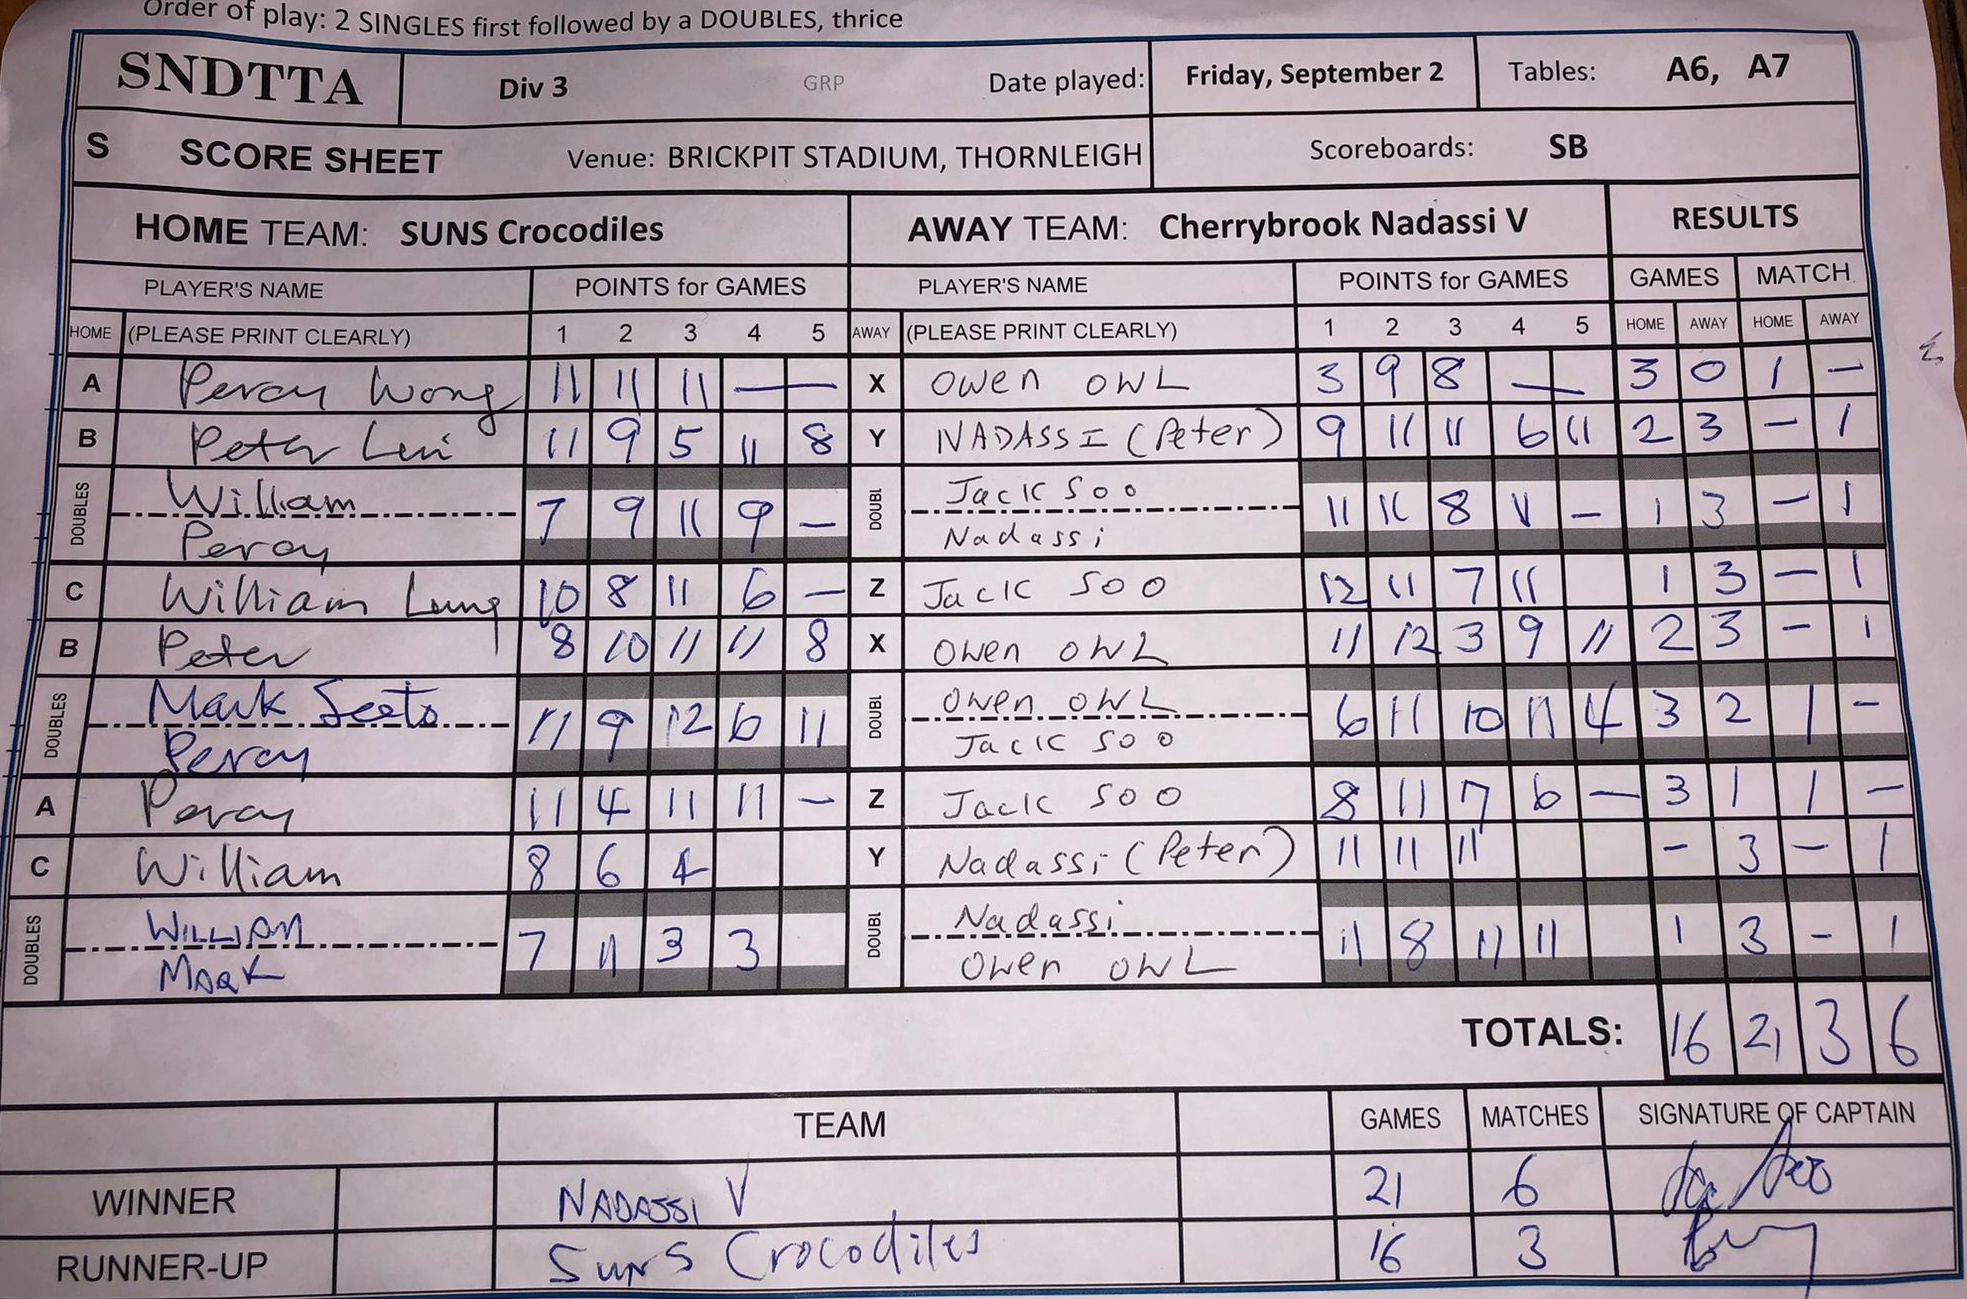 Order of play: 2 SINGLES first followed by a DOUBLES, thrice
SNDTTA Div 3 GRP Date played: Friday, September 2 Tables: A6, A7
S SCORE SHEET Venue: BRICKPIT STADIUM, THORNLEIGH Scoreboards: SB
HOME TEAM: SUNS Crocodiles AWAY TEAM: Cherrybrook Nadassi V RESULTS
PLAYER'S NAME POINTS for GAMES PLAYER'S NAME POINTS for GAMES GAMES MATCH
HOME (PLEASE PRINT CLEARLY) 1 2 3 4 5 AWAY (PLEASE PRINT CLEARLY) 1 2 3 4 5 HOME AWAY HOME AWAY
A Percy Wong 11 11 11 — X Owen OWL 3 9 8 — 3 0 1 –
B Peter Lui 11 9 5 11 8 Y NADASSI (Peter) 9 11 11 6 11 2 3 – 1
DOUBLES William Jack Soo
Percy 7 9 11 9 – DOUBL Nadassi 11 11 8 11 – 1 3 – 1
C William Lung 10 8 11 6 – Z Jack Soo 12 11 7 11 1 3 – 1
B Peter 8 10 11 11 8 X Owen OWL 11 12 3 9 11 2 3 – 1
DOUBLES Mark Seeto Owen OWL
Percy 11 9 12 6 11 DOUBL Jack Soo 6 11 10 11 4 3 2 1 –
A Percy 11 4 11 11 – Z Jack Soo 8 11 7 6 — 3 1 1 –
C William 8 6 4 Y Nadassi (Peter) 11 11 11 – 3 – 1
DOUBLES WILLIAM Nadassi
MARK 7 11 3 3 DOUBL Owen OWL 11 8 11 11 1 3 – 1
TOTALS: 16 21 3 6
TEAM GAMES MATCHES SIGNATURE OF CAPTAIN
WINNER NADASSI V 21 6
RUNNER-UP Suns Crocodiles 16 3